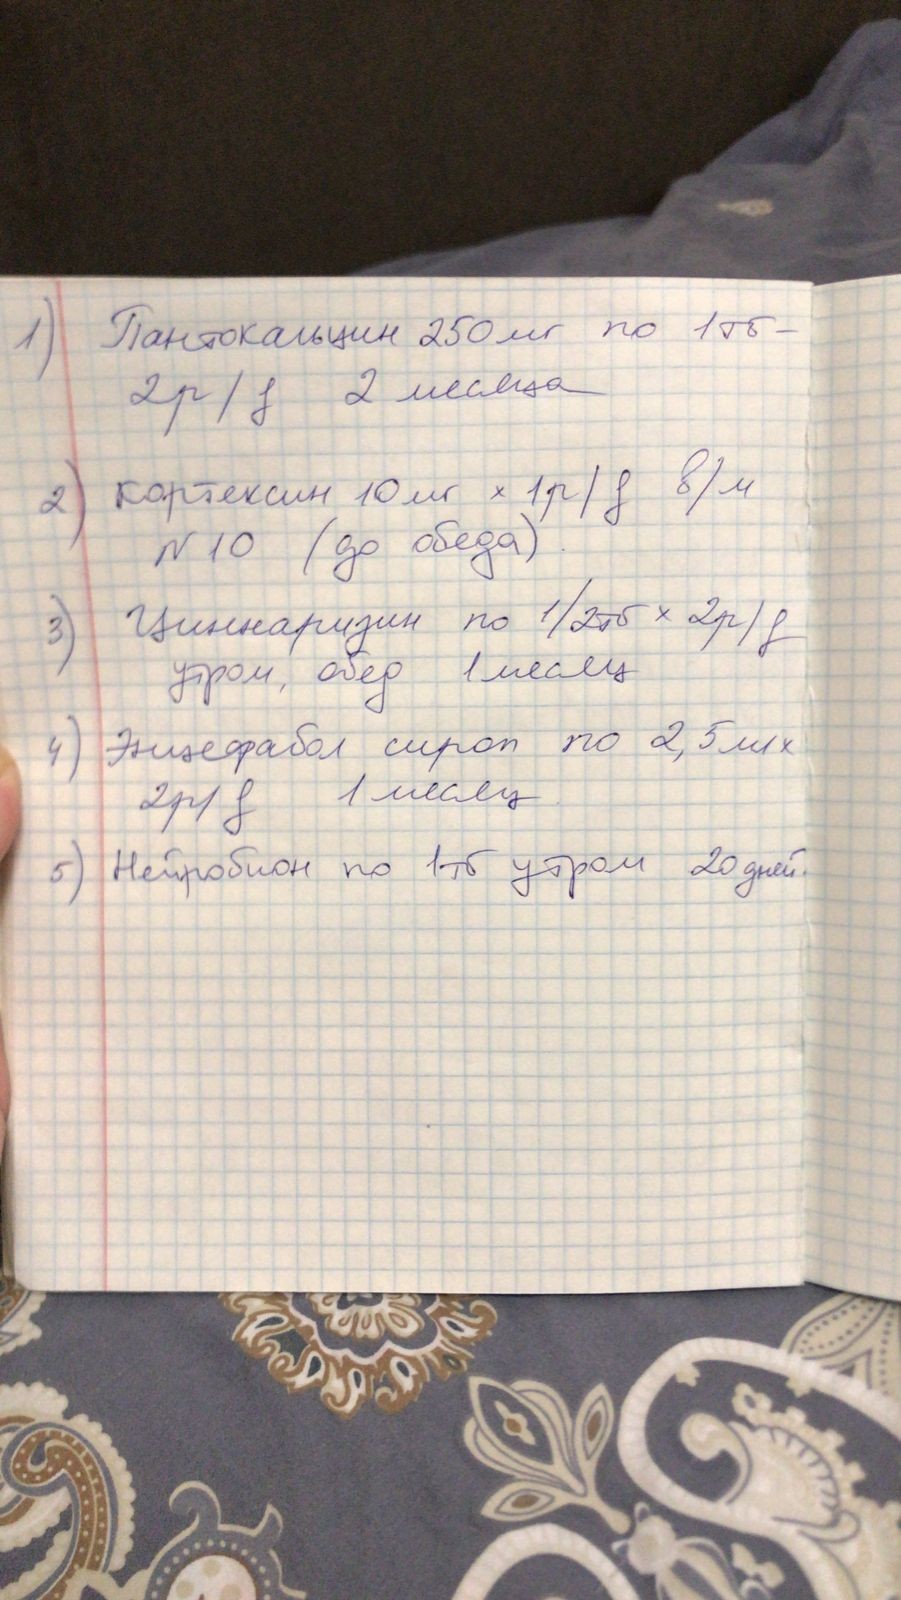 1) Пантокальцин 250 мг по 1тб -
2р/д 2 месяца
2) Кортексин 10 мг × 1р/д в/м
N 10 (до обеда).
3) Циннаризин по 1/2тб × 2р/д
утром, обед 1 месяц
4) Энцефабол сироп по 2,5 мл ×
2р/д 1 месяц.
5) Нейробион по 1тб утром 20 дней.